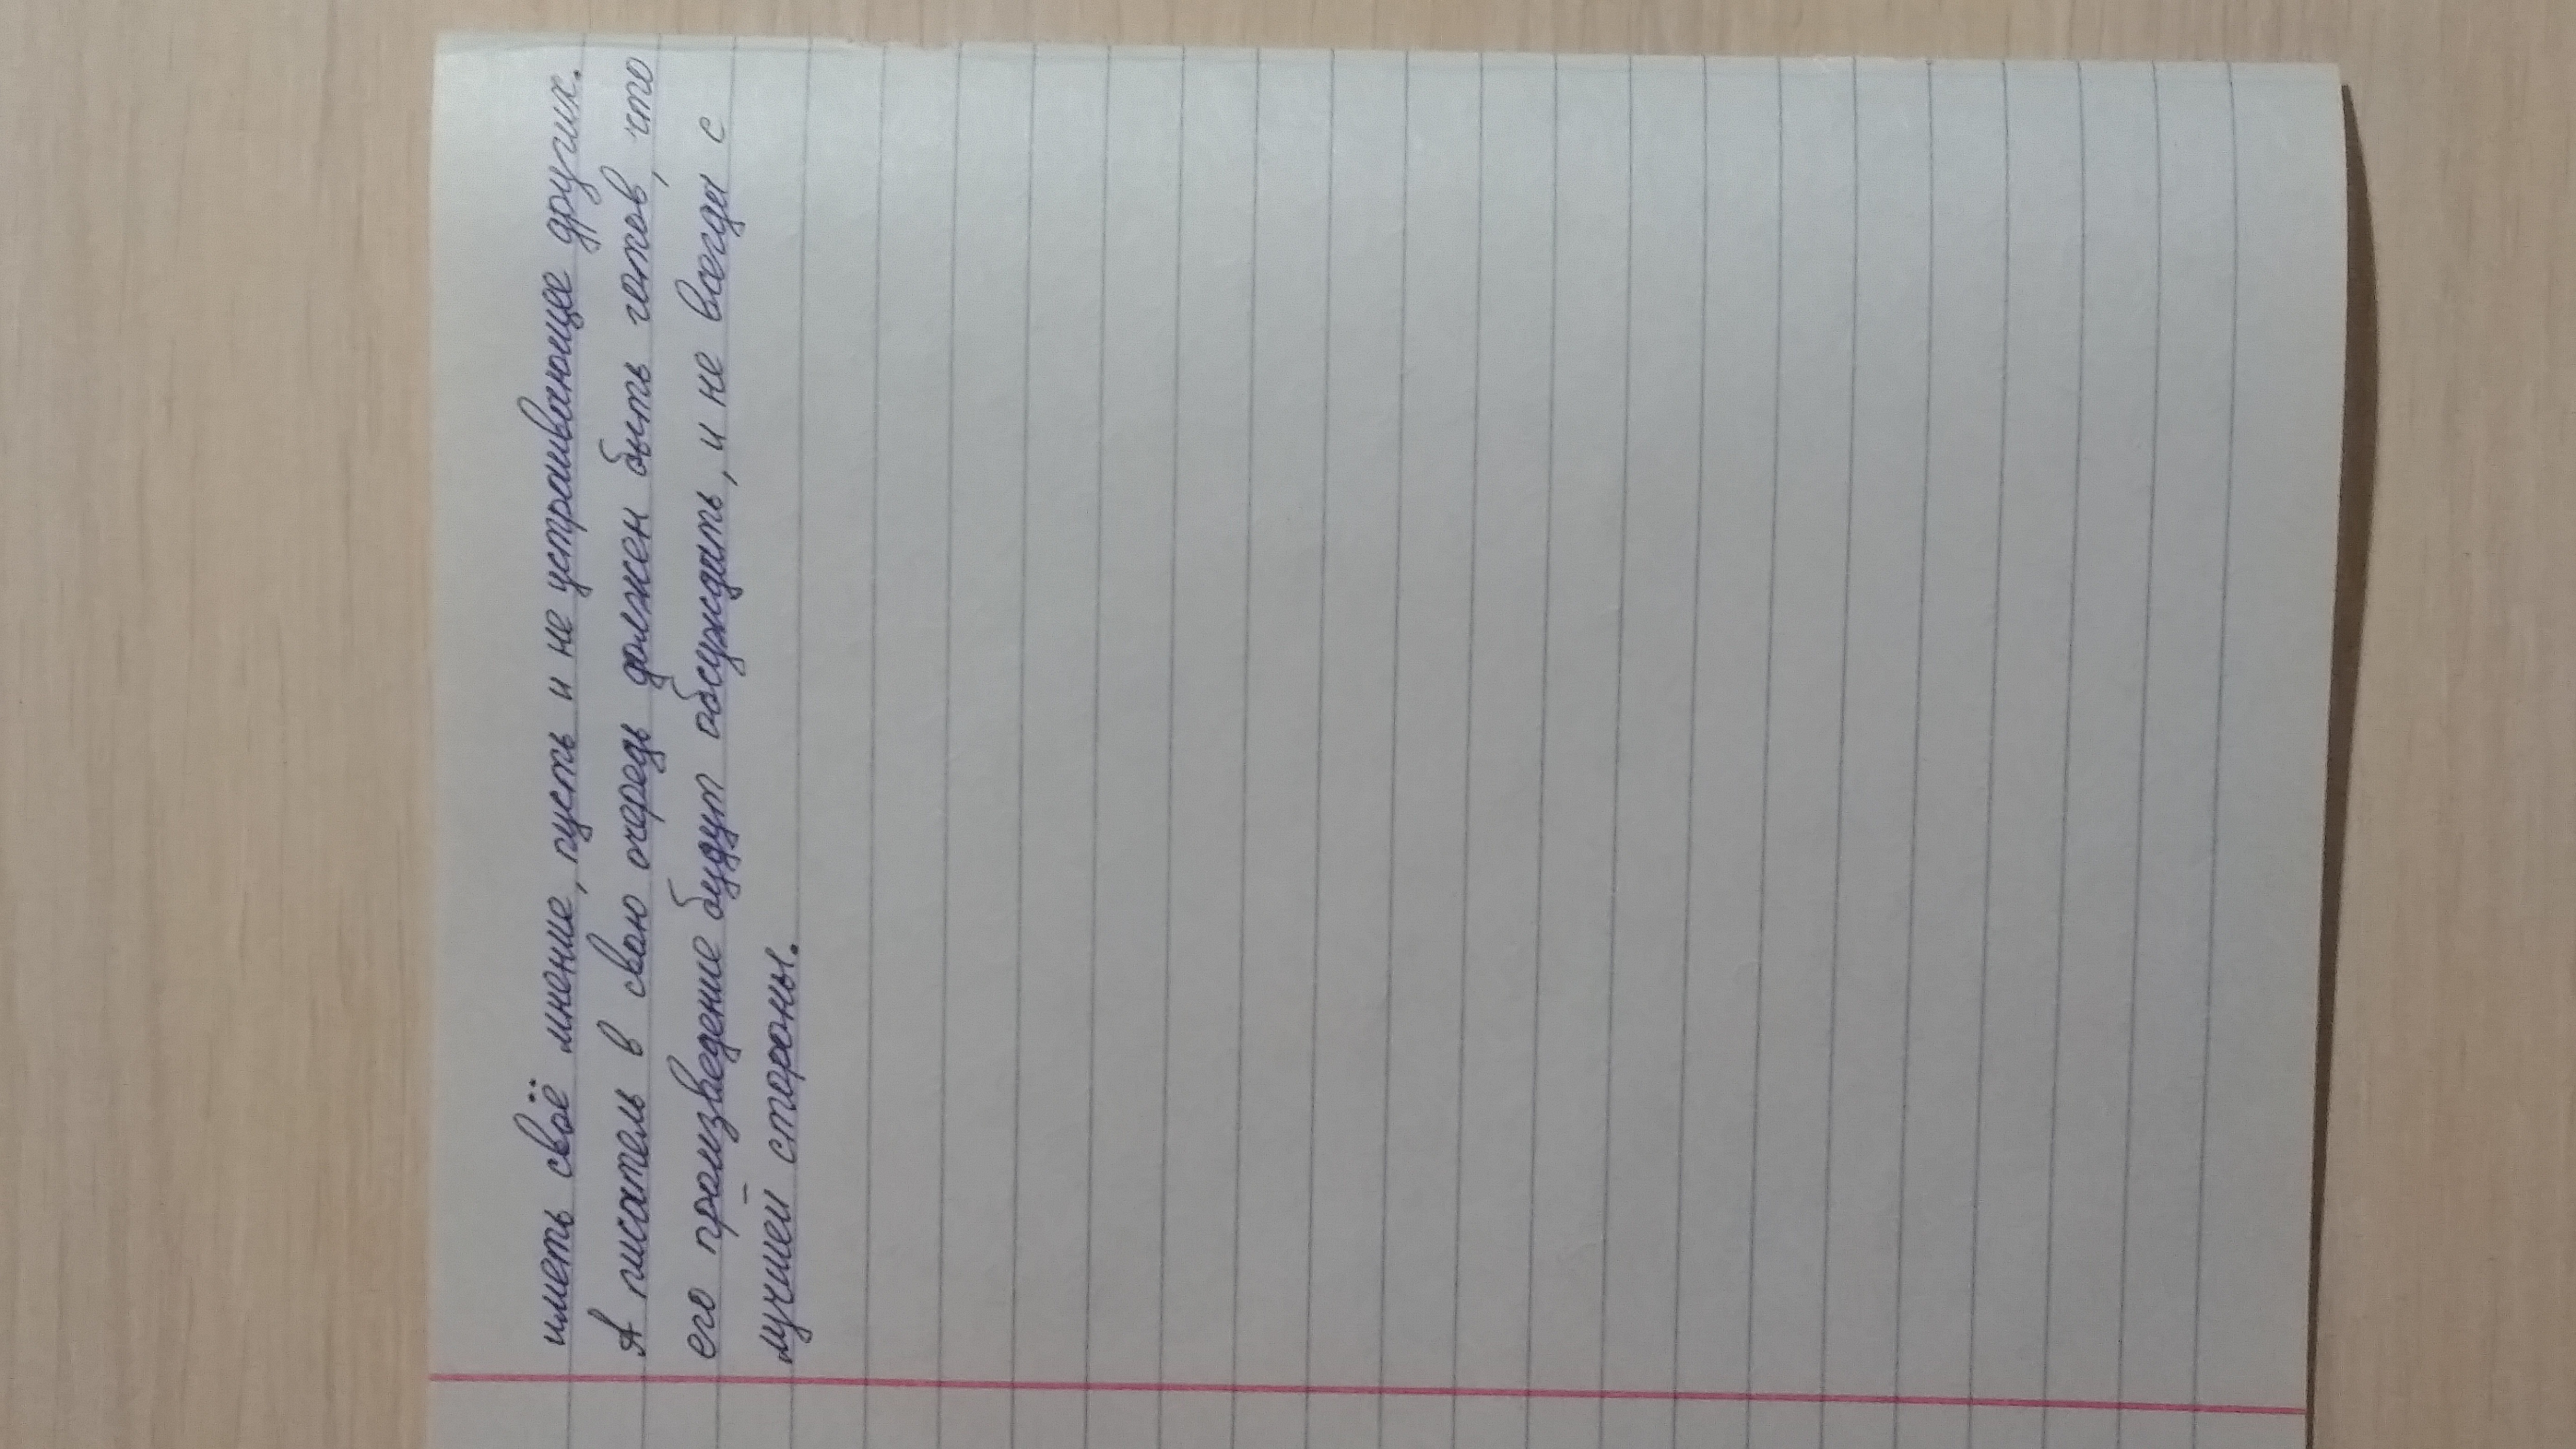 иметь своё мнение, пусть и не устраивающее других.
А писатель в свою очередь должен быть готов, что
его произведение будут обсуждать, и не всегда с
лучшей стороны.